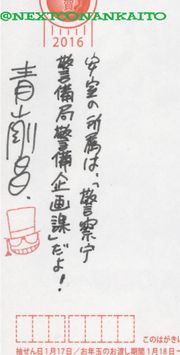 @NEXTCONANKAITO
賀
2016
安室の所属は、「警察庁
警備局警備企画課」だよ!
青山剛昌
このはがきは
抽せん日1月17日/お年玉のお渡し期間1月18日〜